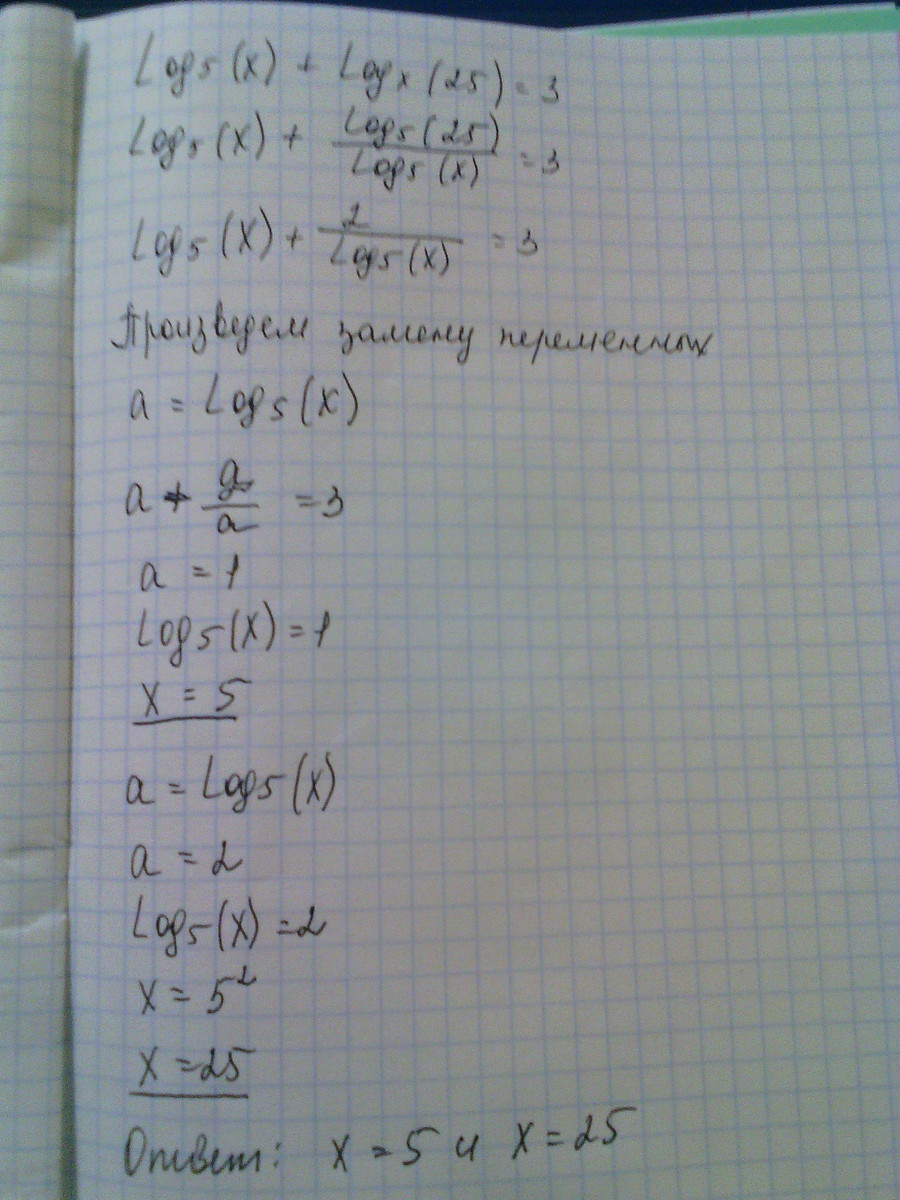 Log₅(x) + Logₓ(25) = 3
Log₅(x) + Log₅(25) / Log₅(x) = 3
Log₅(x) + 2 / Log₅(x) = 3
Произведем замену переменных
a = Log₅(x)
a + 2 / a = 3
a = 1
Log₅(x) = 1
x = 5
a = Log₅(x)
a = 2
Log₅(x) = 2
x = 5²
x = 25
Ответ: x = 5 и x = 25